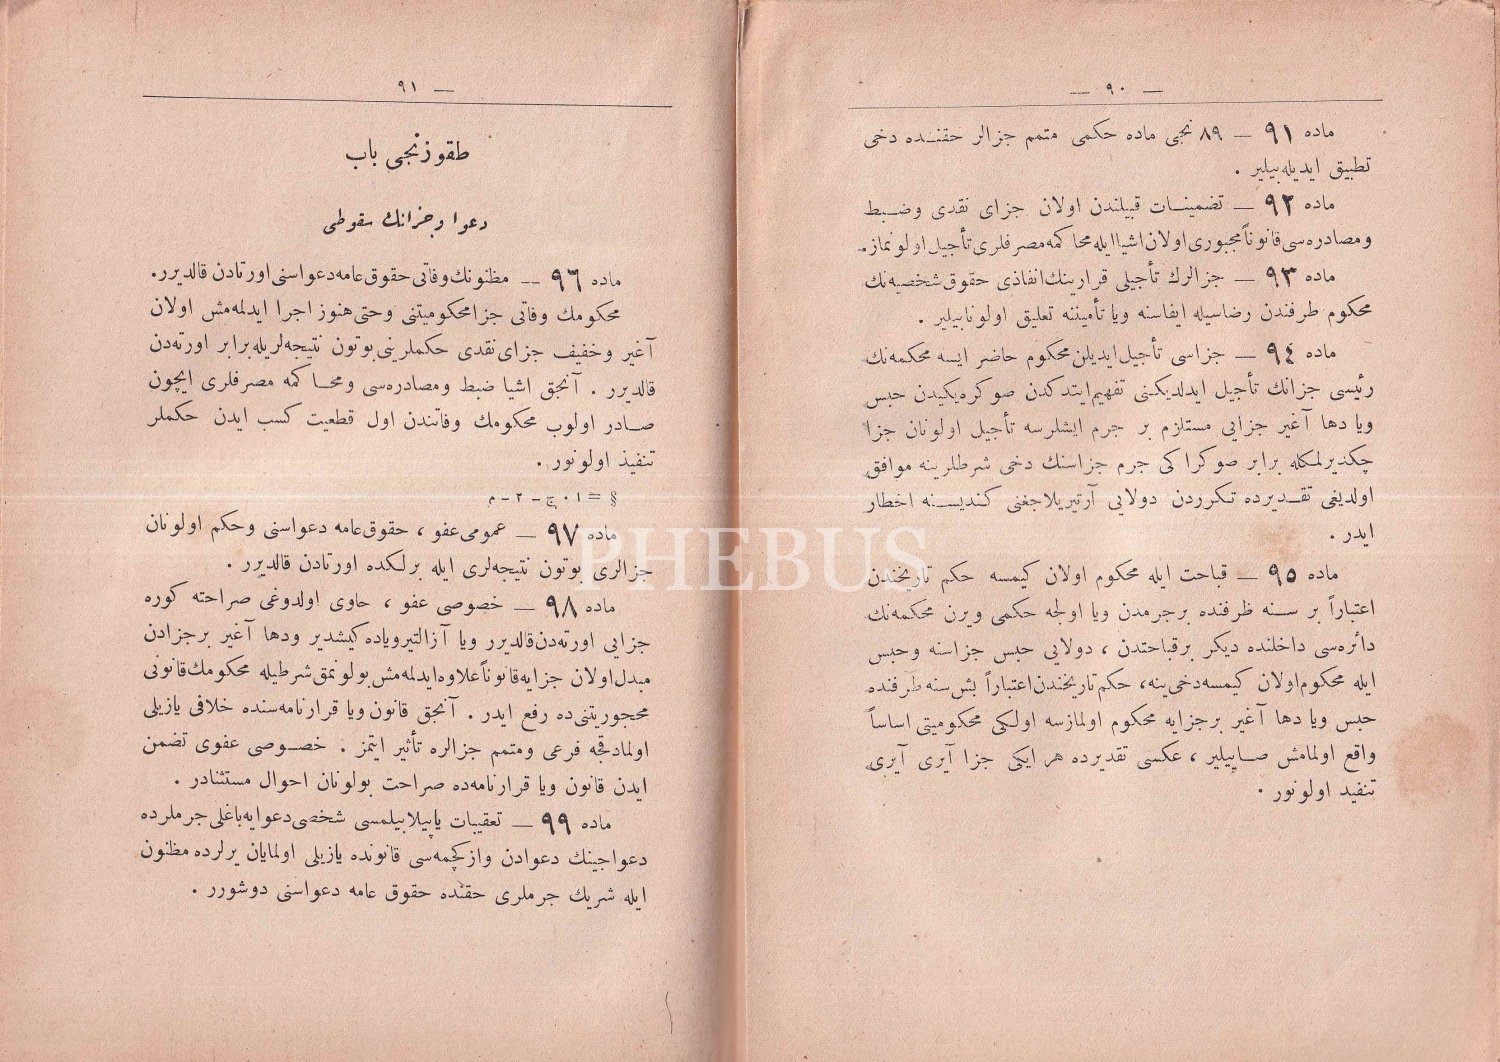 — ٩٠ —
ماده ٩١ — ٨٩ نجى ماده حكمى متمم جزالر حقنده دخى
تطبيق ايديله‌بيلير .
ماده ٩٢ — تضمينات قبيلندن اولان جزاى نقدى وضبط
ومصادره‌سى قانوناً مجبورى اولان اشيا ايله محاكمه مصرفلرى تأجيل اولونماز.
ماده ٩٣ — جزالرك تأجيلى قرارينك انفاذى حقوق شخصيه‌نك
محكوم طرفندن رضاسيله ايفاسنه ويا تأميننه تعليق اولونابيلير .
ماده ٩٤ — جزاسى تأجيل ايديلن محكوم حاضر ايسه محكمه‌نك
رئيسى جزانك تأجيل ايدلديكنى تفهيم ايتدكدن صوكره يكيدن حبس
ويا دها آغير جزايى مستلزم بر جرم ايشلرسه تأجيل اولونان جزا
چكديرلمكله برابر صوكراكى جرم جزاسنك دخى شرطلرينه موافق
اولديغى تقديرده تكرردن دولايى آرتيريلاجغنى كنديسنه اخطار
ايدر .
ماده ٩٥ — قباحت ايله محكوم اولان كيمسه حكم تاريخندن
اعتباراً بر سنه ظرفنده برجرمدن ويا اولجه حكمى ويرن محكمه‌نك
دائره‌سى داخلنده ديكر برقباحتدن ، دولايى حبس جزاسنه وحبس
ايله محكوم اولان كيمسه دخى ينه، حكم تاريخندن اعتباراً بش سنه ظرفنده
حبس ويا دها آغير برجزايه محكوم اولمازسه اولكى محكوميتى اساساً
واقع اولمامش صاييلير ، عكسى تقديرده هر ايكى جزا آيرى آيرى
تنفيد اولونور .
— ٩١
طقوزنجى باب
دعوا وجزانك سقوطى
ماده ٩٦ — مظنونك وفاتى حقوق عامه دعواسنى اورتادن قالديرر.
محكومك وفاتى جزا محكوميتنى وحتى هنوز اجرا ايدلمه‌مش اولان
آغير وخفيف جزاى نقدى حكملرينى بوتون نتيجه‌لريله برابر اورته‌دن
قالديرر . آنجق اشيا ضبط ومصادره‌سى ومحاكمه مصرفلرى ايچون
صادر اولوب محكومك وفاتندن اول قطعيت كسب ايدن حكملر
تنفيذ اولونور .
§ = ١٠ ج - ٢ - م
ماده ٩٧ — عمومى عفو ، حقوق عامه دعواسنى وحكم اولونان
جزالرى بوتون نتيجه‌لرى ايله برلكده اورتادن قالديرر .
ماده ٩٨ — خصوصى عفو ، حاوى اولدوغى صراحته كوره
جزايى اورته‌دن قالديرر ويا آزالتير ويا ده كيشدير ودها آغير برجزادن
مبدل اولان جزايه قانوناً علاوه ايدلمه‌مش بولونمق شرطيله محكومك قانونى
محجوريتنى ده رفع ايدر . آنجق قانون ويا قرارنامه‌سنده خلافى يازيلى
اولمادقجه فرعى ومتمم جزالره تأثير ايتمز . خصوصى عفوى تضمن
ايدن قانون ويا قرارنامه‌ده صراحت بولونان احوال مستثنادر .
ماده ٩٩ — تعقيبات ياپيلابيلمسى شخصى دعوايه باغلى جرملرده
دعواجينك دعوادن وازكچمه‌سى قانونده يازيلى اولمايان يرلرده مظنون
ايله شريك جرملرى حقنده حقوق عامه دعواسنى دوشورر .
PHEBUS